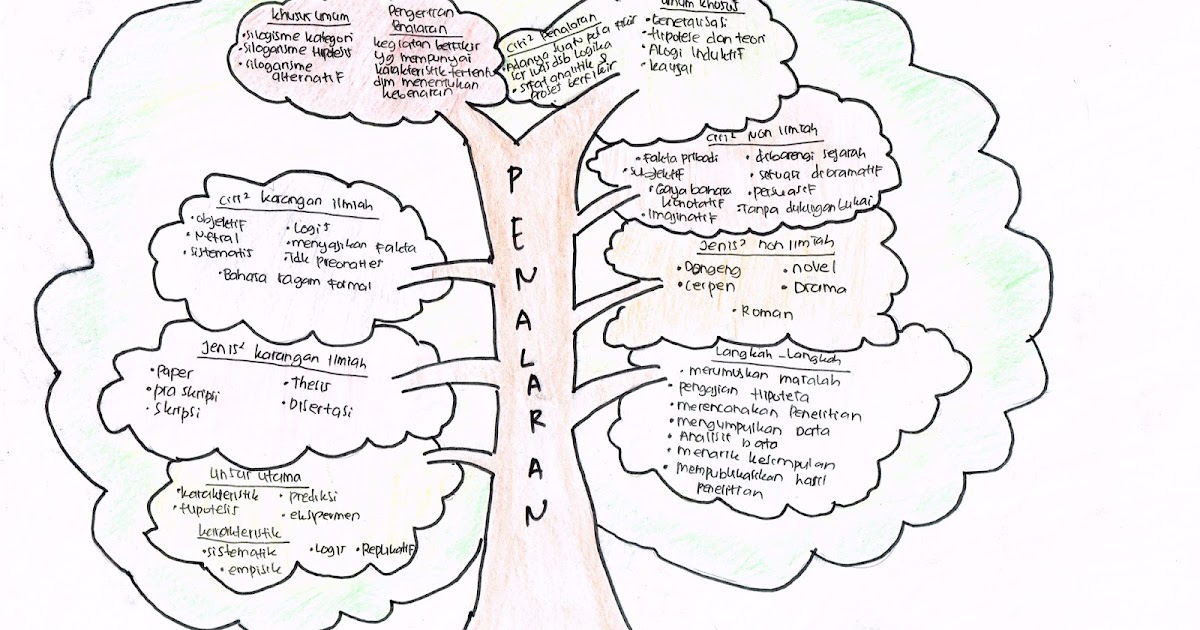 Khusus Umum
• silogisme kategori
• silogansme Hipotesis
• silogansme
alternatif
Pengertian
Penalaran
kegiatan berfikir
yg mempunyai
karakteristik tertentu
dlm menentukan
kebenaran
Ciri² Penalaran
• Adanya suatu pola fikir
scr luas dsb logika
• sifat analitik &
proses berfikir
Umum Khusus
• Generalisasi
• Hipotese dan teori
• Alogi Induktif
• kausal
PENALARAN
Ciri² karangan Ilmiah
• objektif
• Netral
• sistematis
• Logis
• menyajikan Fakta
• Bahasa ragam Formal
Jenis² karangan Ilmiah
• Paper
• pra skripsi
• Skripsi
• Thesis
• Disertasi
Unsur Utama
• karakteristik
• Hipotesis
• prediksi
• ekspermen
karakteristik
• sistematik
• Logis
• Replikatif
• empisik
Ciri² Non Ilmiah
• Fakta pribadi
• subjektif
• Gaya bahasa
konotatif
• Imajinatif
• dibarengi sejarah
• setuasi dramatif
• persuasif
• Tanpa dukungan bukti
Jenis² non Ilmiah
• Dongeng
• Cerpen
• novel
• Drama
• Roman
Langkah-Langkah
• merumuskan masalah
• pengajian Hipotesa
• merencanakan Penelitian
• mengumpulkan Data
• Analisis Data
• menarik kesimpulan
• mempublikasikan hasil
penelitian